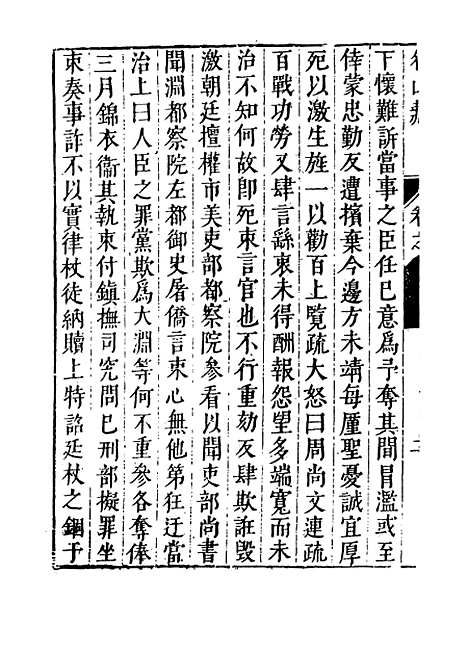 下懷難訴當事之臣任巳意爲予奪其間冒濫或至
倖蒙忠勤反遭擯棄今邊方未靖每厪聖憂誠宜厚
死以激生旌一以勸百上覽疏大怒曰周尚文連疏
百戰功勞又肆言繇衷未得酬報怨望多端寛而未
治不知何故卽死束言官也不行重劾反肆欺誑毁
激朝廷擅權市美吏部都察院參看以聞吏部尚書
聞淵都察院左都御史屠僑言束心無他第狂迂當
治上曰人臣之罪黨欺爲大淵等何不重參各奪俸
三月錦衣衞其執束付鎮撫司究問巳刑部擬罪坐
束奏事詐不以實律杖徒納贖上特詔廷杖之錮于